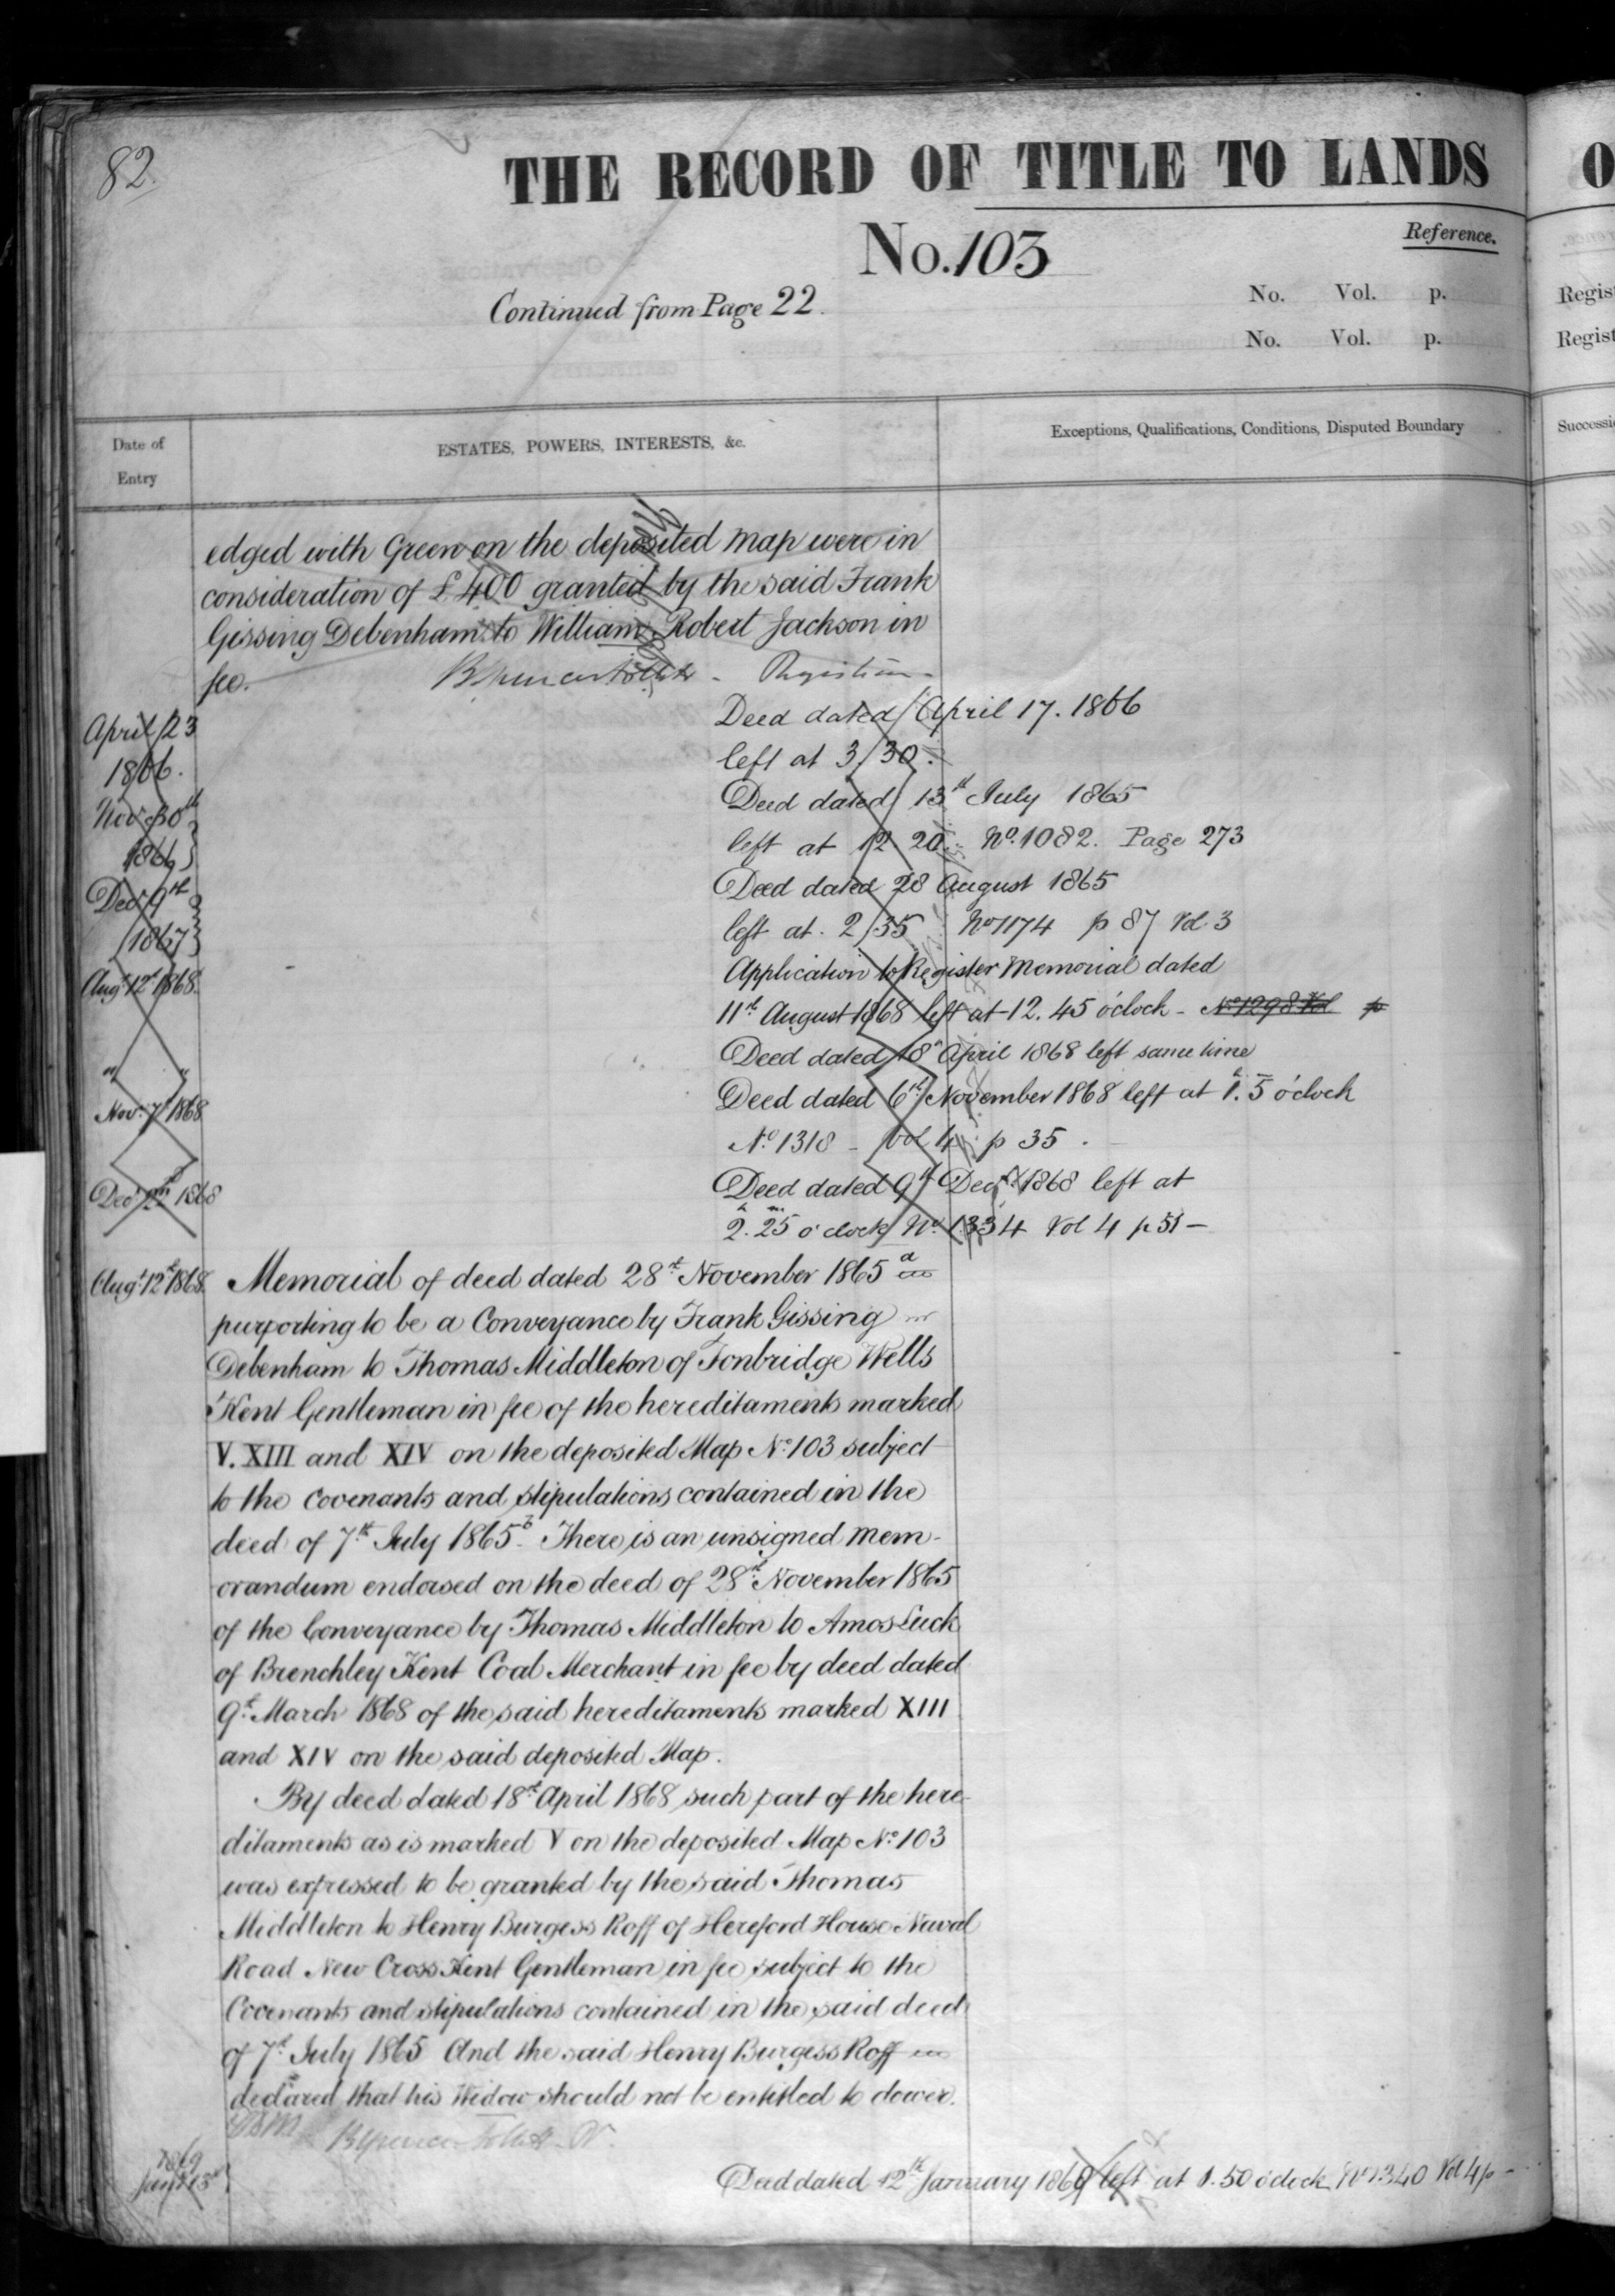 82.
THE RECORD OF TITLE TO LANDS
No. 103
Reference.
Continued from Page 22.
No. Vol. p.
No. Vol. p.
Date of Entry
ESTATES, POWERS, INTERESTS, &c.
Exceptions, Qualifications, Conditions, Disputed Boundary
edged with Green on the deposited map were in
consideration of £400 granted by the said Frank
Gissing Debenham to William Robert Jackson in
fee.
April 23 1866.
Deed dated April 17. 1866
left at 3/30.
Nov. 30th 1866
Deed dated 13th July 1865
left at 12 20. No. 1082. Page 273
Decr 9th 1867
Deed dated 28 August 1865
left at. 2/35 No 1174 p 87 Vol 3
Augt 12th 1868.
Application to Register Memorial dated
11th August 1868 left at 12.45 o'clock - No 1298 Vol p
" "
Deed dated 18th April 1868 left same time
Nov. 7 1868
Deed dated 6th November 1868 left at 1. 5 o'clock
No. 1318 - Vol 4 p 35.
Decr 1868
Deed dated 9th Decr. 1868 left at
2. 25 o'clock No. 1334 Vol 4 p 51 -
Augt 12th 1868.
Memorial of deed dated 28th November 1865 a
purporting to be a Conveyance by Frank Gissing
Debenham to Thomas Middleton of Tonbridge Wells
Kent Gentleman in fee of the hereditaments marked
V. XIII and XIV on the deposited Map No. 103 subject
to the covenants and stipulations contained in the
deed of 7th July 1865 b. There is an unsigned mem-
orandum endorsed on the deed of 28th November 1865
of the Conveyance by Thomas Middleton to Amos Luck
of Brenchley Kent Coal Merchant in fee by deed dated
9th March 1868 of the said hereditaments marked XIII
and XIV on the said deposited Map.
By deed dated 18th April 1868 such part of the here-
ditaments as is marked V on the deposited Map No. 103
was expressed to be granted by the said Thomas
Middleton to Henry Burgess Roff of Hereford House Naval
Road New Cross Kent Gentleman in fee subject to the
Covenants and stipulations contained in the said deed
of 7th July 1865 And the said Henry Burgess Roff
declared that his Widow should not be entitled to dower.
1869
Jany 13th
Deed dated 12th January 1869 left at 1.50 o'clock No 1340 Vol 4 p -
O
Regist
Regist
Successi